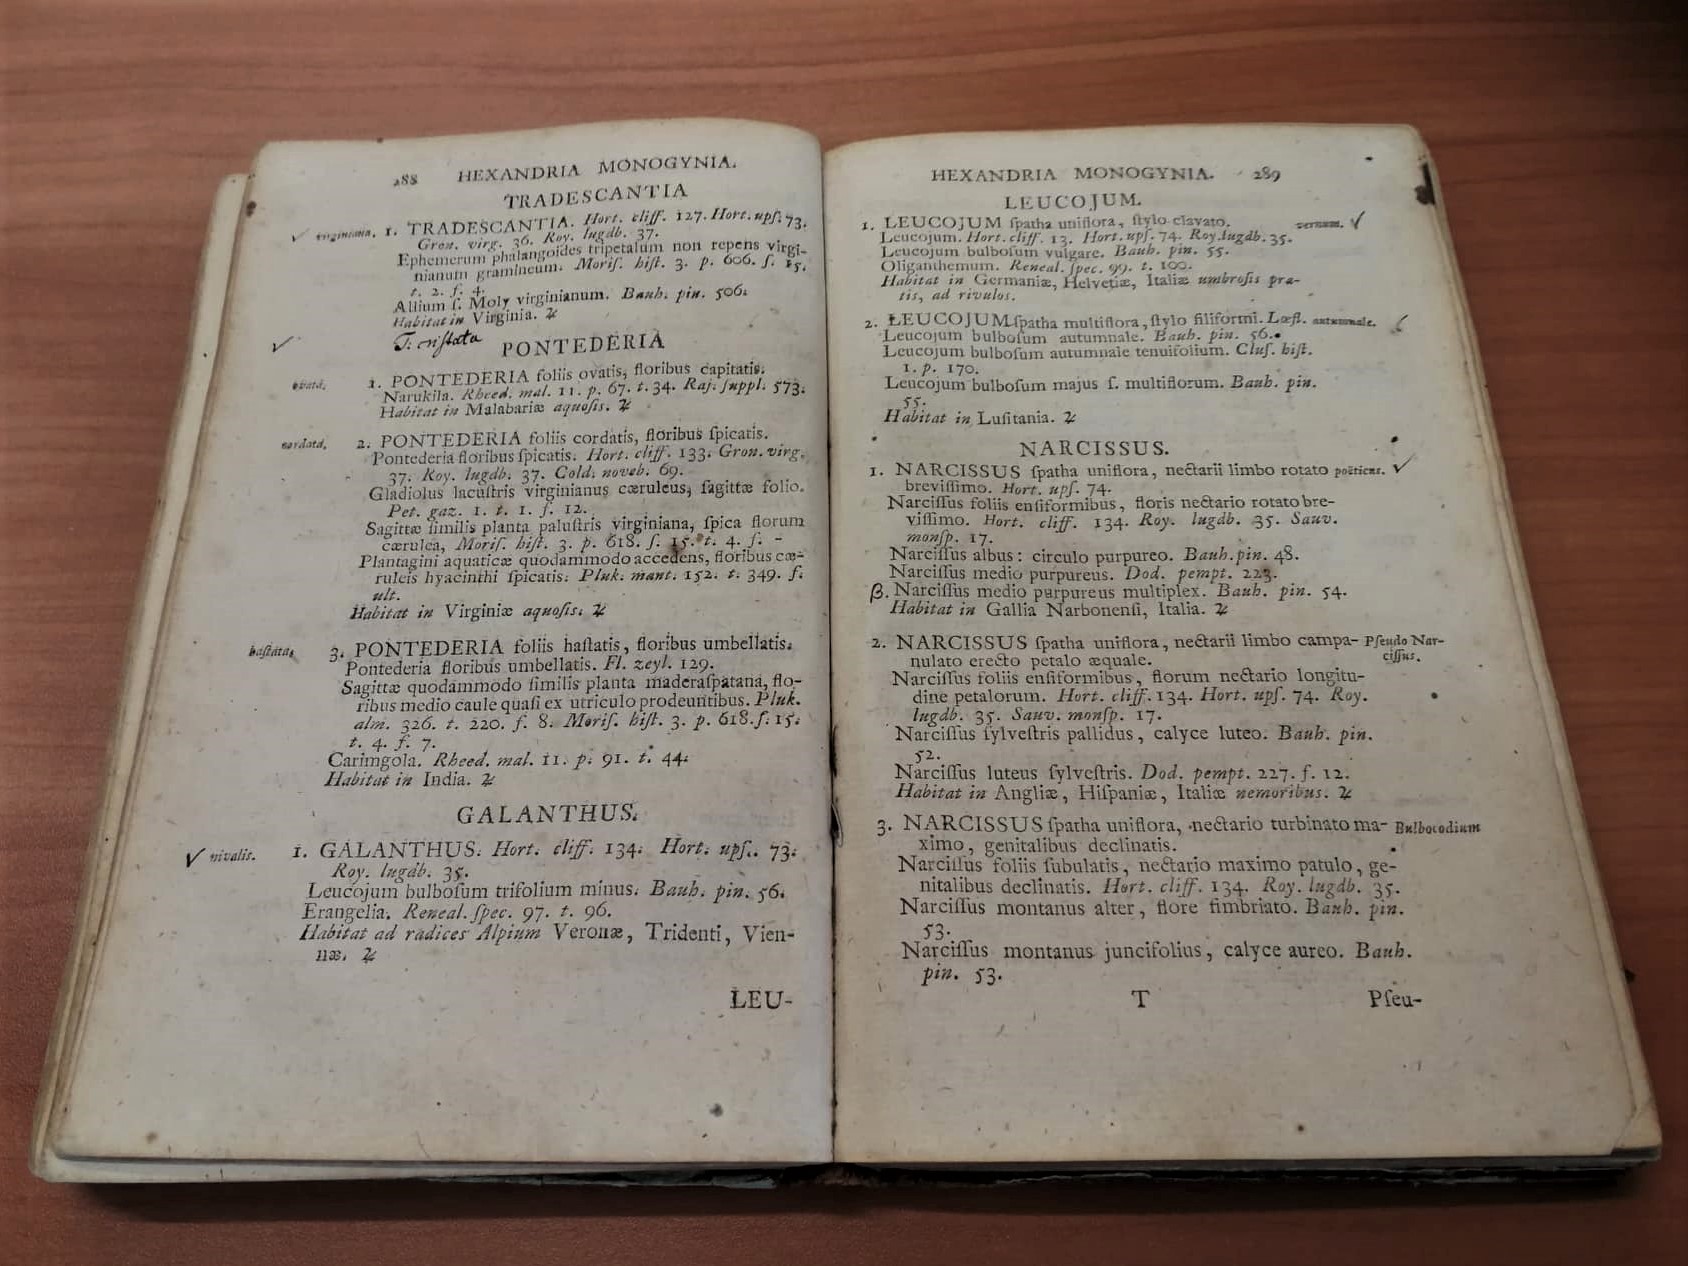 288 HEXANDRIA MONOGYNIA.
TRADESCANTIA
virginiana. 1. TRADESCANTIA. Hort. cliff. 127. Hort. upſ. 73.
Gron. virg. 36. Roy. lugdb. 37.
Ephemerum phalangoides tripetalum non repens virgi-
nianum gramineum. Moriſ. hiſt. 3. p. 606. ſ. 15.
t. 2. f. 4.
Allium ſ. Moly virginianum. Bauh. pin. 506.
Habitat in Virginia. ♃
T. criſtata
PONTEDERIA
ovata. 1. PONTEDERIA foliis ovatis, floribus capitatis.
Narukila. Rheed. mal. 11. p. 67. t. 34. Raj. ſuppl. 573.
Habitat in Malabariæ aquoſis. ♃
cordata. 2. PONTEDERIA foliis cordatis, floribus ſpicatis.
Pontederia floribus ſpicatis. Hort. cliff. 133. Gron. virg.
37. Roy. lugdb. 37. Cold. noveb. 69.
Gladiolus lacuſtris virginianus cæruleus, ſagittæ folio.
Pet. gaz. 1. t. 1. f. 12.
Sagittæ ſimilis planta paluſtris virginiana, ſpica florum
cærulea, Moriſ. hiſt. 3. p. 618. ſ. 15. t. 4. f. -
Plantagini aquaticæ quodammodo accedens, floribus cæ-
ruleis hyacinthi ſpicatis. Pluk. mant. 152. t. 349. f.
ult.
Habitat in Virginiæ aquoſis. ♃
haſtata. 3. PONTEDERIA foliis haſtatis, floribus umbellatis.
Pontederia floribus umbellatis. Fl. zeyl. 129.
Sagittæ quodammodo ſimilis planta maderaſpatana, flo-
ribus medio caule quaſi ex utriculo prodeuntibus. Pluk.
alm. 326. t. 220. f. 8. Moriſ. hiſt. 3. p. 618. ſ. 15.
t. 4. f. 7.
Carimgola. Rheed. mal. 11. p. 91. t. 44.
Habitat in India. ♃
GALANTHUS.
✓ nivalis. 1. GALANTHUS. Hort. cliff. 134. Hort. upſ. 73.
Roy. lugdb. 35.
Leucojum bulboſum trifolium minus. Bauh. pin. 56.
Erangelia. Reneal. ſpec. 97. t. 96.
Habitat ad radices Alpium Veronæ, Tridenti, Vien-
næ. ♃
LEU-
HEXANDRIA MONOGYNIA. 289
LEUCOJUM.
1. LEUCOJUM ſpatha uniflora, ſtylo clavato. vernum. ✓
Leucojum. Hort. cliff. 13. Hort. upſ. 74. Roy. lugdb. 35.
Leucojum bulboſum vulgare. Bauh. pin. 55.
Oliganthemum. Reneal. ſpec. 99. t. 100.
Habitat in Germaniæ, Helvetiæ, Italiæ umbroſis pra-
tis, ad rivulos.
2. LEUCOJUM ſpatha multiflora, ſtylo filiformi. Lœfl. autumnale.
Leucojum bulboſum autumnale. Bauh. pin. 56.
Leucojum bulboſum autumnale tenuifolium. Cluſ. hiſt.
1. p. 170.
Leucojum bulboſum majus ſ. multiflorum. Bauh. pin.
55.
Habitat in Luſitania. ♃
NARCISSUS.
1. NARCISSUS ſpatha uniflora, nectarii limbo rotato poëticus. ✓
breviſſimo. Hort. upſ. 74.
Narciſſus foliis enſiformibus, floris nectario rotato bre-
viſſimo. Hort. cliff. 134. Roy. lugdb. 35. Sauv.
monſp. 17.
Narciſſus albus: circulo purpureo. Bauh. pin. 48.
Narciſſus medio purpureus. Dod. pempt. 223.
β. Narciſſus medio purpureus multiplex. Bauh. pin. 54.
Habitat in Gallia Narbonenſi, Italia. ♃
2. NARCISSUS ſpatha uniflora, nectarii limbo campa- Pſeudo Nar-
nulato erecto petalo æquale. ciſſus.
Narciſſus foliis enſiformibus, florum nectario longitu-
dine petalorum. Hort. cliff. 134. Hort. upſ. 74. Roy.
lugdb. 35. Sauv. monſp. 17.
Narciſſus ſylveſtris pallidus, calyce luteo. Bauh. pin.
52.
Narciſſus luteus ſylveſtris. Dod. pempt. 227. f. 12.
Habitat in Angliæ, Hiſpaniæ, Italiæ nemoribus. ♃
3. NARCISSUS ſpatha uniflora, nectario turbinato ma- Bulbocodium
ximo, genitalibus declinatis.
Narciſſus foliis ſubulatis, nectario maximo patulo, ge-
nitalibus declinatis. Hort. cliff. 134. Roy. lugdb. 35.
Narciſſus montanus alter, flore fimbriato. Bauh. pin.
53.
Narciſſus montanus juncifolius, calyce aureo. Bauh.
pin. 53.
T Pſeu-